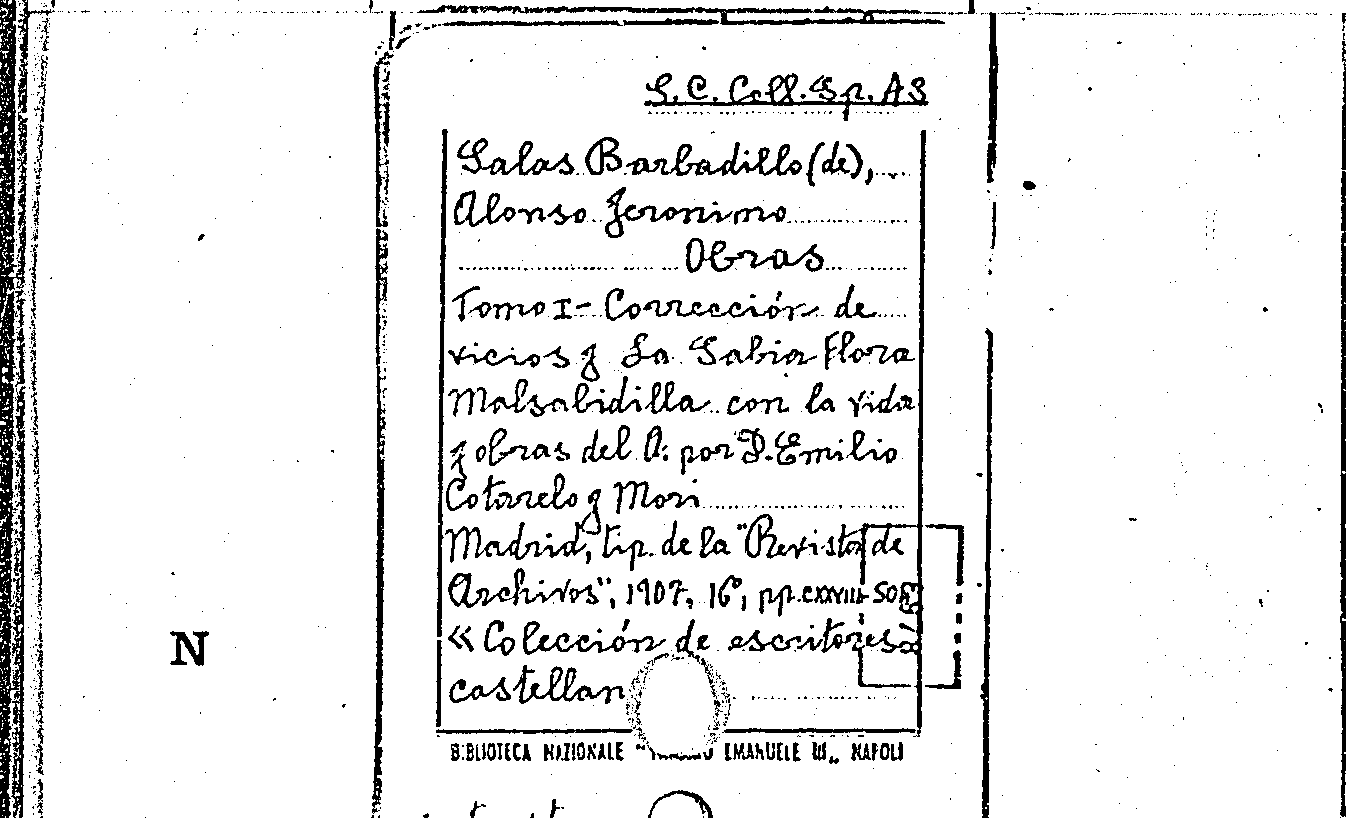 S.C. Coll. Sp. A3
Salas Barbadillo (de),
Alonso Jeronimo
Obras
Tomo I - Corrección de
vicios y La Sabia Flora
Malsabidilla con la vida
y obras del A. por D. Emilio
Cotarelo y Mori
Madrid, tip. de la "Revista de
Archivos", 1907, 16°, pp. CXXVIII-
« Colección de escritores
castellan
N
BIBLIOTECA NAZIONALE " EMANUELE III„ NAPOLI